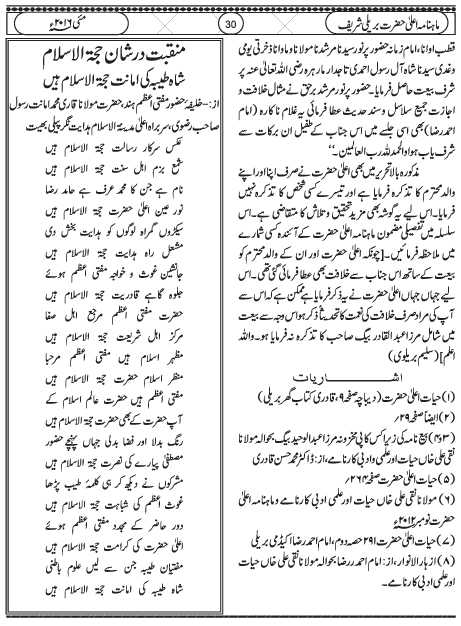 ماہنامہ اعلیٰ حضرت بریلی شریف
30
مئی ۲۰۱۶ء
قطب اوانا، امام زمانہ حضور پر نور سیدنا مرشدنا مولانا وماوانا ذخرتی یومی
وغدی سیدنا شاہ آل رسول احمدی تاجدار مارہرہ رضی اللہ تعالیٰ عنہ پر
شرف بیعت حاصل فرمایا۔ حضور پر نور مرشد برحق نے مثال خلافت و
اجازت جمیع سلاسل وسند حدیث عطا فرمائی یہ غلام ناکارہ (امام
احمد رضا) بھی اسی جلسے میں اس جناب کے طفیل ان برکات سے
شرف یاب ہوا والحمد للہ رب العالمین۔‘‘
مذکورہ بالا تحریر میں بھی اعلیٰ حضرت نے صرف اپنا اور اپنے
والد محترم کا تذکرہ فرمایا ہے اور تیسرے کسی شخص کا تذکرہ نہیں
فرمایا۔ اس لیے یہ گوشہ بھی مزید تحقیق و تلاش کا متقاضی ہے۔ اس
سلسلہ میں تفصیلی مضمون ماہنامہ اعلیٰ حضرت کے آئندہ کسی شمارے
میں ملاحظہ فرمائیں۔ [چونکہ اعلیٰ حضرت اور ان کے والد محترم کو
بیعت کے ساتھ اس جناب سے خلافت بھی عطا فرمائی گئی تھی۔ اس
لیے جہاں جہاں اعلیٰ حضرت نے یہ ذکر فرمایا ہے ممکن ہے کہ اس سے
آپ کی مراد صرف خلافت کی نعمت کا تحدیثاً ذکر ہو اس وجہ سے بیعت
میں شامل مرزا عبد القادر بیگ صاحب کا تذکرہ نہ فرمایا ہو۔ واللہ
اعلم] (سلیم بریلوی)
اشاریات
(۱) حیات اعلیٰ حضرت (دیباچہ صفحہ ۹، قادری کتاب گھر بریلی)
(۲) ایضاً صفحہ ۲۹
(۳، ۴) بیع نامہ کی زیراکس کاپی مخزونہ مرزا عبد الوحید بیگ بحوالہ مولانا
نقی علی خاں حیات اور علمی و ادبی کارنامے، از: ڈاکٹر محمد حسن قادری
(۵) حیات اعلیٰ حضرت صفحہ ۲۶۴
(۶) مولانا نقی علی خاں حیات اور علمی ادبی کارنامے و ماہنامہ اعلیٰ
حضرت نومبر ۲۰۱۲ء
(۷) حیات اعلیٰ حضرت ۲۹۱ حصہ دوم، امام احمد رضا اکیڈمی بریلی
(۸) ازہار الانوار، از: امام احمد رضا بحوالہ مولانا نقی علی خاں حیات
اور علمی ادبی کارنامے۔
منقبت در شان حجۃ الاسلام
شاہ طیبہ کی امانت حجۃ الاسلام ہیں
از:- خلیفۂ حضور مفتی اعظم ہند حضرت مولانا قاری محمد امانت رسول
صاحب رضوی، سربراہ اعلیٰ مدینۃ الاسلام ہدایت نگر پیلی بھیت
عکس سرکار رسالت حجۃ الاسلام ہیں
شمع بزم اہل سنت حجۃ الاسلام ہیں
نام ہے جن کا محمد عرف ہے حامد رضا
نور عین اعلیٰ حضرت حجۃ الاسلام ہیں
سیکڑوں گمراہ لوگوں کو ہدایت بخش دی
مشعل راہ ہدایت حجۃ الاسلام ہیں
جانشین غوث و خواجہ مفتی اعظم ہوئے
جلوہ گاہے قادریت حجۃ الاسلام ہیں
حضرت مفتی اعظم مرجع اہل صفا
مرکز اہل شریعت حجۃ الاسلام ہیں
مظہر اسلام ہیں مفتی اعظم مرحبا
منظر اسلام حضرت حجۃ الاسلام ہیں
مفتی اعظم ہیں حضرت عالم اسلام کے
آپ حضرت کے بھی حضرت حجۃ الاسلام ہیں
رنگ بدلا اور فضا بدلی جہاں پہنچے حضور
مصطفیٰ پیارے کی نصرت حجۃ الاسلام ہیں
مشرکوں نے دیکھ کر ہی کلمۂ طیب پڑھا
غوث اعظم کی شباہت حجۃ الاسلام ہیں
دور حاضر کے مجدد مفتی اعظم ہوئے
اعلیٰ حضرت کی کرامت حجۃ الاسلام ہیں
مفتیان طیبہ جن سے لیں علوم باطنی
شاہ طیبہ کی امانت حجۃ الاسلام ہیں